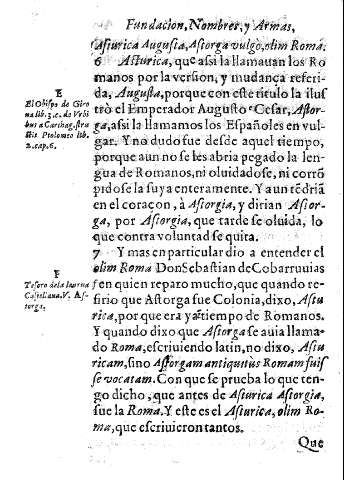 Fundacion, Nombres, y Armas,
Asturica Augusta, Astorga vulgo, olim Roma.
6 Asturica, que assi la llamauan los Ro
manos por la version, y mudança referi-
da, Augusta, porque con este titulo la ilus
trò el Emperador Augusto Cesar, Astor-
ga, assi la llamamos los Españoles en vul-
gar. Y no dudo fue desde aquel tiempo,
porque aun no se les abria pegado la len-
gua de Romanos, ni oluidadose, ni corrō
pidose la suya enteramente. Y aun tēdriā
en el coraçon, à Astorgia, y dirian Astor-
ga, por Astorgia, que tarde se oluida, lo
que contra voluntad se quita.
7 Y mas en particular dio a entender el
olim Roma Don Sebastian de Cobarruuias
en quien reparo mucho, que quando re-
firio que Astorga fue Colonia, dixo, Astu
rica, por que era ya tiempo de Romanos.
Y quando dixo que Astorga se auia llama-
do Roma, escriuiendo latin, no dixo, Astu
ricam, sino Astorgam antiquitus Romam fuis
se vocatam. Con que se prueba lo que ten-
go dicho, que antes de Asturica Astorgia,
fue la Roma. Y este es el Asturica, olim Ro-
ma, que escriuieron tantos.
Que
E
El Obispo de Giro
na lib. 3. c. de Vrbi
bus a Carthag. stra
ctis Ptolomeo
2. cap. 6.
F
Tesoro de la lengua
Castellana. V. As-
torga.